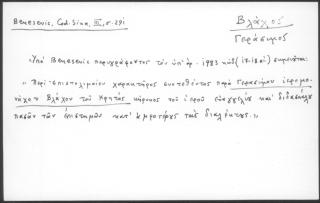 Benešević, Cod. Sina, III, σ. 291
Βλάχος
Γεράσιμος
Ὑπὸ Benešević περιγράφοντος τὸν ὑπ' ἀρ. 1983 κώδ. (17-18 αἰ) σημειοῦται:
"Περὶ ἐπιστολιμαίου χαρακτῆρος συντεθέντος παρὰ Γερασίμου ἱερομο-
νάχου Βλάχου τοῦ Κρητὸς κήρυκος τοῦ ἱεροῦ εὐαγγελίου καὶ διδασκάλου
πασῶν τῶν ἐπιστημῶν κατ' ἀμφοτέρας τὰς διαλέκτους."